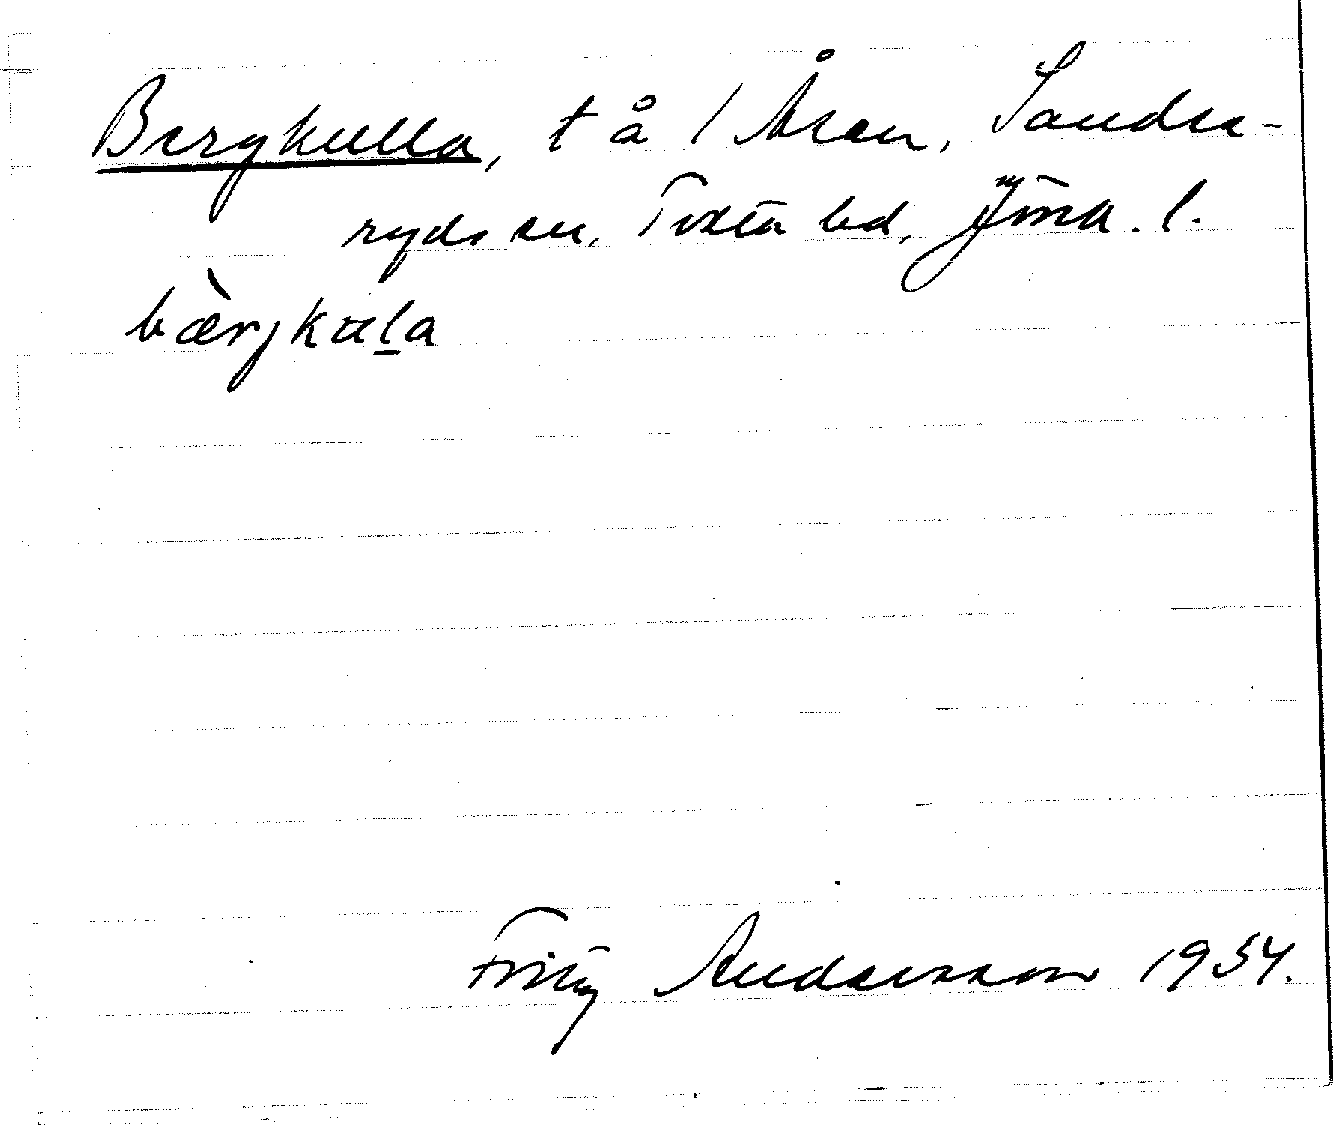 Bergkulla, t å / Åsen, Sandse-
ryds sn, Tveta hd, Jma. l.
bæ̀rjkuḻa
Fritz Andersson 1954.